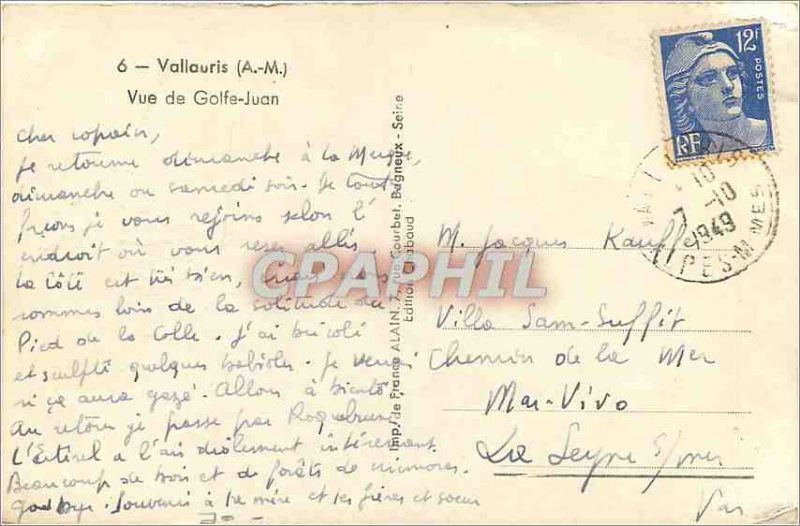 6 — Vallauris (A.-M.)
Vue de Golfe-Juan
Cher copain,
je retourne dimanche à la Mugue,
dimanche ou samedi soir. De toute
façons je vous rejoins selon l'
endroit où vous serez allés
la côté est très bien, mais nous
sommes loin de la solitude du
Pied de la Colle. J'ai bricolé
et sculpté quelques babioles. Je verrai
si ça aura gazé. Allons à bientôt
Au retour je passe par Roquebrune
L'Estérel a l'air drôlement intéressant.
Beaucoup de bois et de forêts de mimosas.
Good bye. Souvenir à ta mère et tes frères et soeur
Imp. de France ALAIN, 7, rue Courbet, Bagneux - Seine
Edition Chabaud
CPAPHIL
12F
POSTES
RF
10
7 -10
1949
ALPES-MMES
M. Jacques Kauffe
Villa Sam-Suffit
Chemin de la Mer
Mar-Vivo
La Seyne s/mer
Var